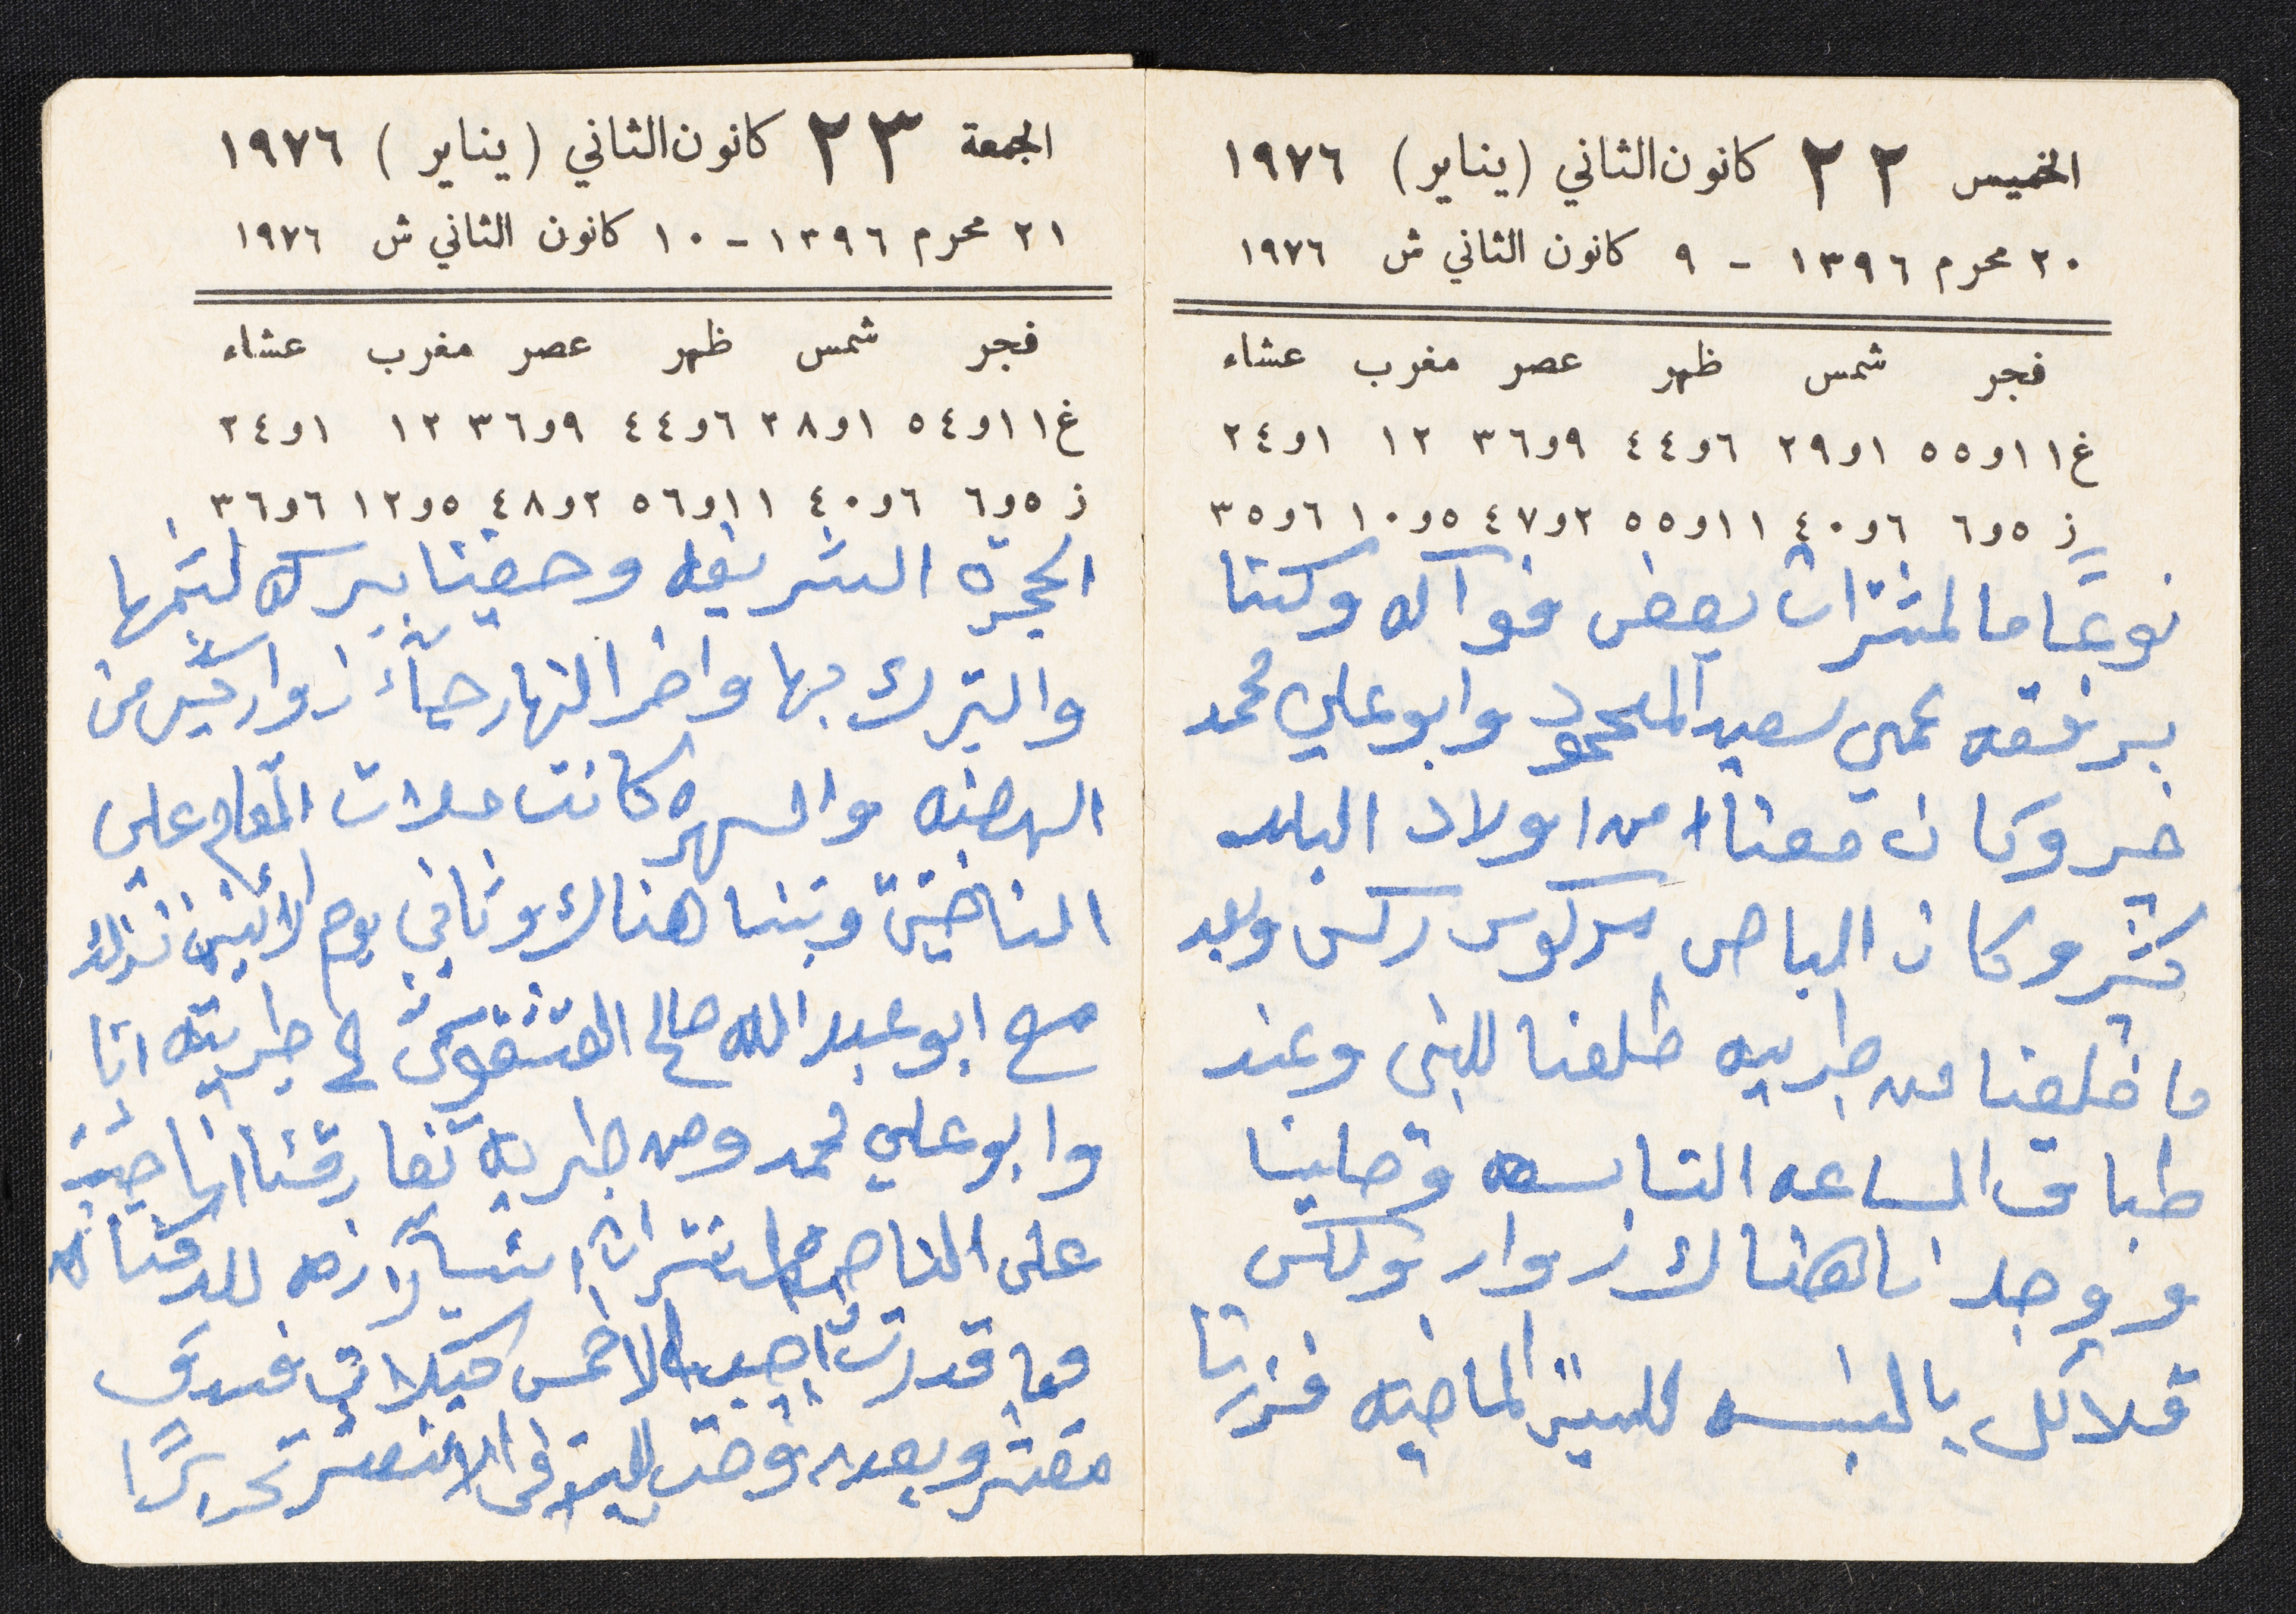 الخميس ٢٢ كانون الثاني (يناير) ١٩٧٦
٢٠ محرم ١٣٩٦ - ٩ كانون الثاني ش ١٩٧٦
فجر شمس ظهر عصر مغرب عشاء
غ ١١و٥٥ ١و٢٩ ٦و٤٤ ٩و٣٦ ١٢ ١و٢٤
ز ٥و٦ ٦و٤٠ ١١و٥٥ ٢و٤٧ ٥و١٠ ٦و٣٥
نوعًا ما لمشترات بعض فواكه وكنا
برفقه عمي سعيد المحمود وابو علي محمد
خير وكان معنا من اولاد البلد
كثير وكان الباص سركوس ركس وبعد
ما خلصنا من طبريه طلعنا للنبي وعند
طباق الساعه التاسعه وصلينا
ووجدنا هناك زوار ولكن
قلائل بالنسبه للسنين الماضيه فزرنا
الجمعة ٢٣ كانون الثاني (يناير) ١٩٧٦
٢١ محرم ١٣٩٦ - ١٠ كانون الثاني ش ١٩٧٦
فجر شمس ظهر عصر مغرب عشاء
غ ١١و٥٤ ١و٢٨ ٦و٤٤ ٩و٣٦ ١٢ ١و٢٤
ز ٥و٦ ٦و٤٠ ١١و٥٦ ٢و٤٨ ٥و١٢ ٦و٣٦
الحجرة الشريفه وحضينا بركة لثمها
والتبرك بها واخر النهار جاء زوار كثير من
الهضبه والسهره كانت ملات المقام على
الناحيتين وبتنا هناك وثاني يوم الاثنين نزلت
مع ابو عبد الله صالح القشقوش الى طبريه انا
وابو علي محمد ومن طبريه تفارقنا انا جيت
على الناصره اشتران اشيا لازمه للدكانه
وما قدرت اجيب الا خمس كيلات فندق
مقشر وبعده وضب للبيت في الانتصر تحريرًا